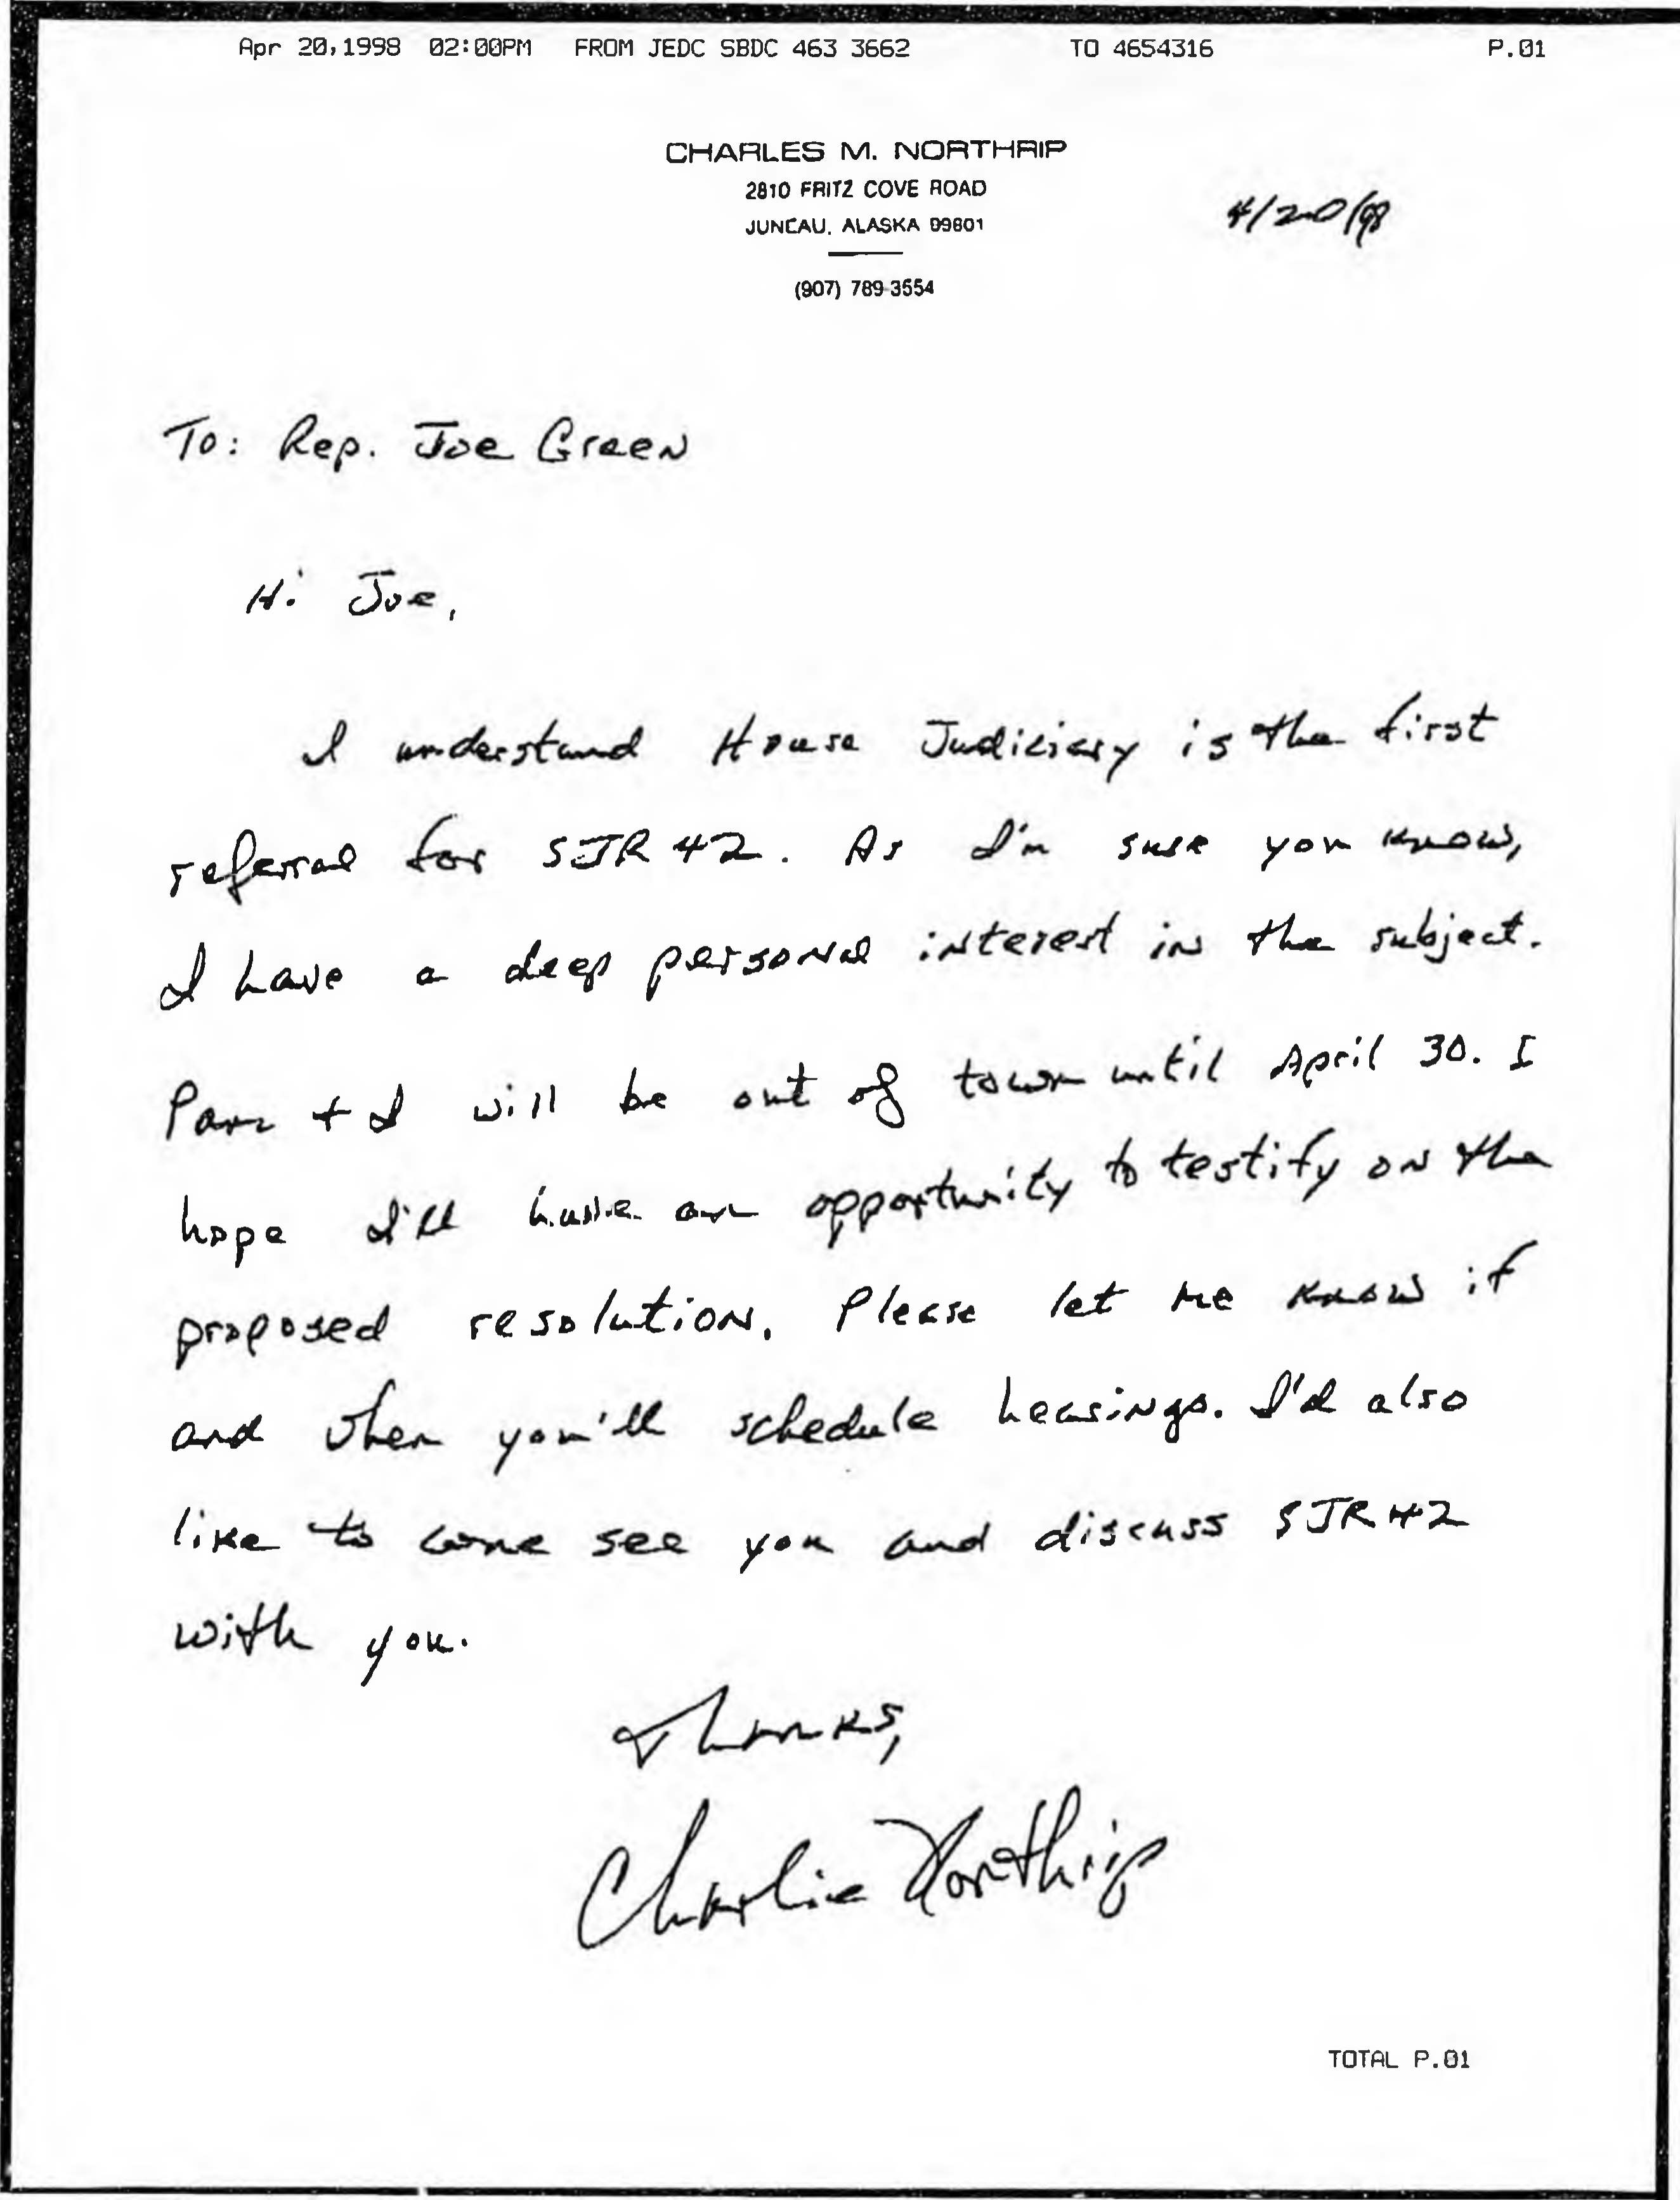 Apr 20,1998 02:00PM FROM JEDC SBDC 463 3662 TO 4654316 P.01
CHARLES M. NORTHRIP
2810 FRITZ COVE ROAD
JUNEAU, ALASKA 99801
4/20/98
(907) 789-3554
To: Rep. Joe Green
Hi Joe,
I understand House Judiciary is the first
referral for SJR 42. As I'm sure you know,
I have a deep personal interest in the subject.
Pam + I will be out of town until April 30. I
hope I'll have an opportunity to testify on the
proposed resolution. Please let me know if
and when you'll schedule hearings. I'd also
like to come see you and discuss SJR 42
with you.
Thanks,
Charlie Northrip
TOTAL P.01